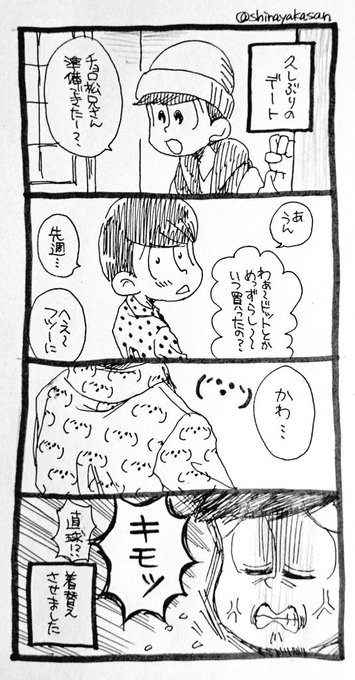 @shinayakasan
久しぶりの
デート
チョロ松兄さん
準備できたー？
あ
うん
わぁ〜ドットとか
めっずらし〜〜
いつ買ったの？
先週…
へぇ〜
フツーに
かわ…
キモッ
直球!?
着替え
させました